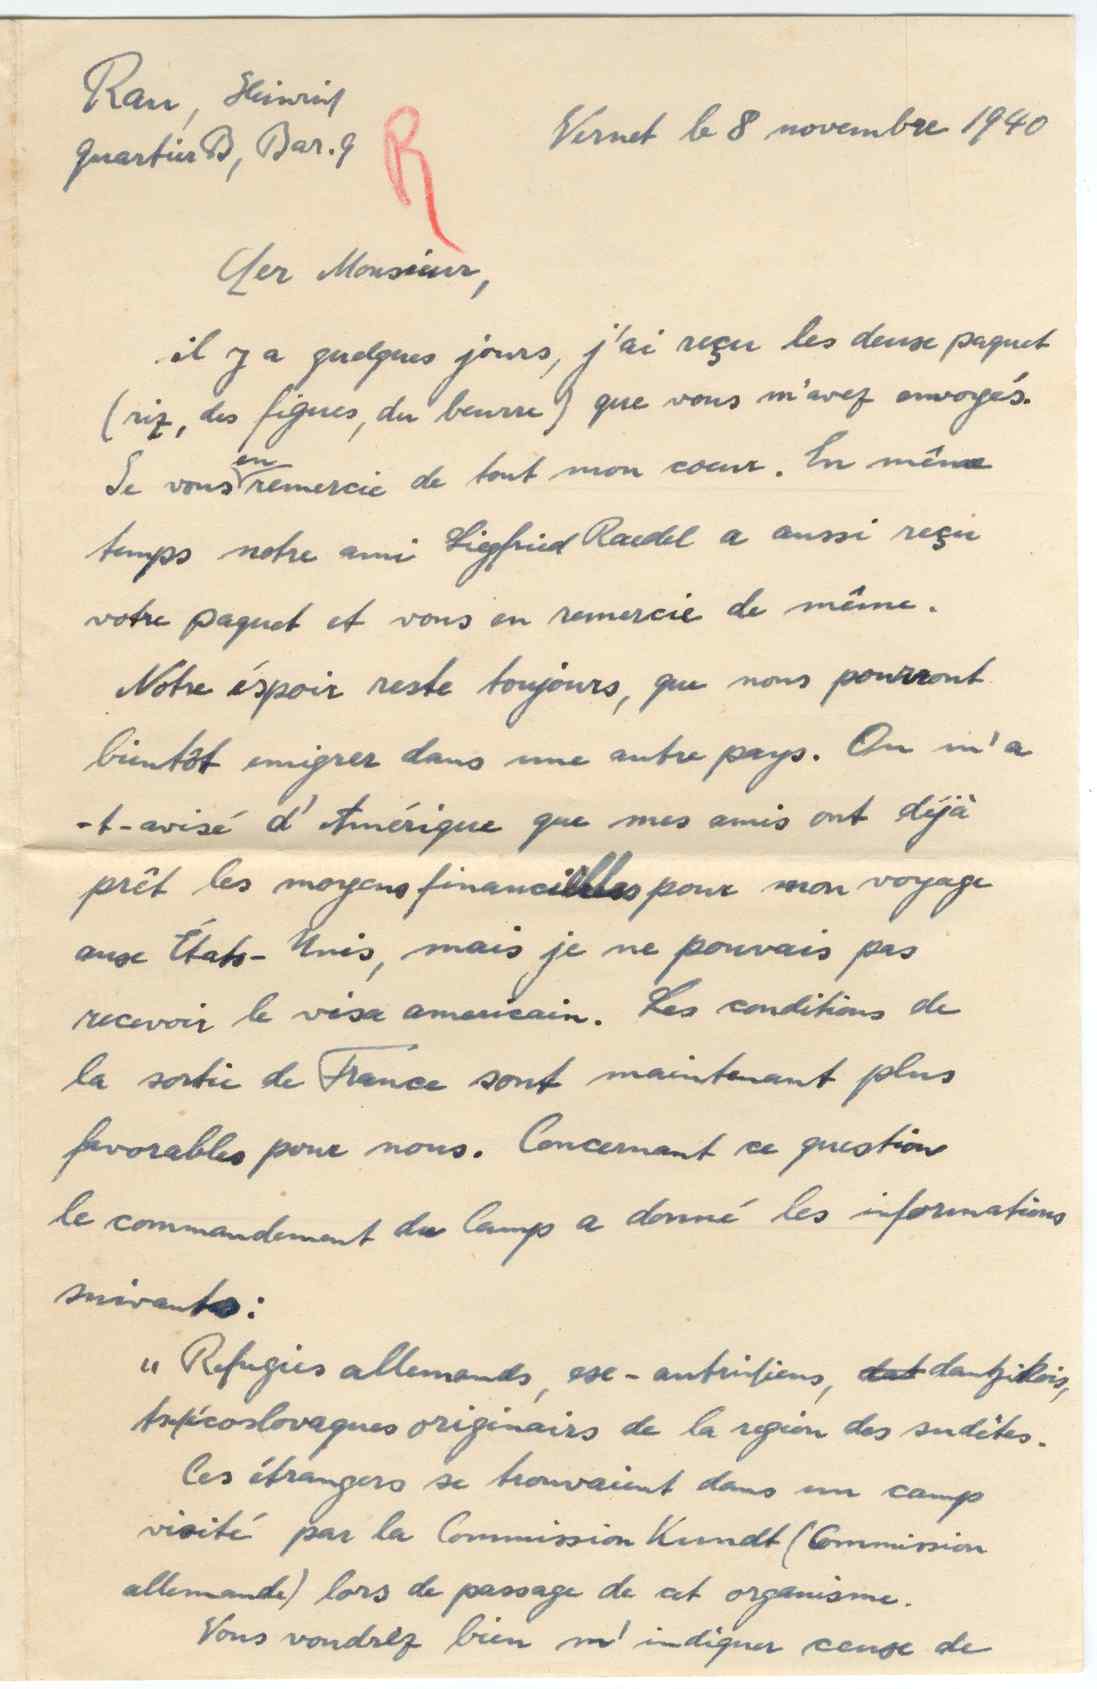 Rau, Heinrich
quartier B, Bar. 9
R
Vernet le 8 novembre 1940
Cher Monsieur,
il y a quelques jours, j'ai reçu les deux paquet
(riz, des figues, du beurre) que vous m'avez envoyés.
Je vous en remercie de tout mon coeur. En même
temps notre ami Siegfried Raedel a aussi reçu
votre paquet et vous en remercie de même.
Notre éspoir reste toujours, que nous pourront
bientôt emigrer dans une autre pays. On m'a
-t-avisé d'Amérique que mes amis ont déjà
prêt les moyens financielles pour mon voyage
aux États-Unis, mais je ne pouvais pas
recevoir le visa americain. Les conditions de
la sortie de France sont maintenant plus
favorables pour nous. Concernant ce question
le commandement du Camp a donné les informations
suivants:
„ Refugiés allemands, ex-autrichiens, dat dantzikois,
tschécoslovaques originairs de la region des sudètes.
Ces étrangers se trouvaient dans un camp
visité par la Commission Kundt (Commission
allemande) lors de passage de cet organisme.
Vous voudrèz bien m'indiquer ceux de